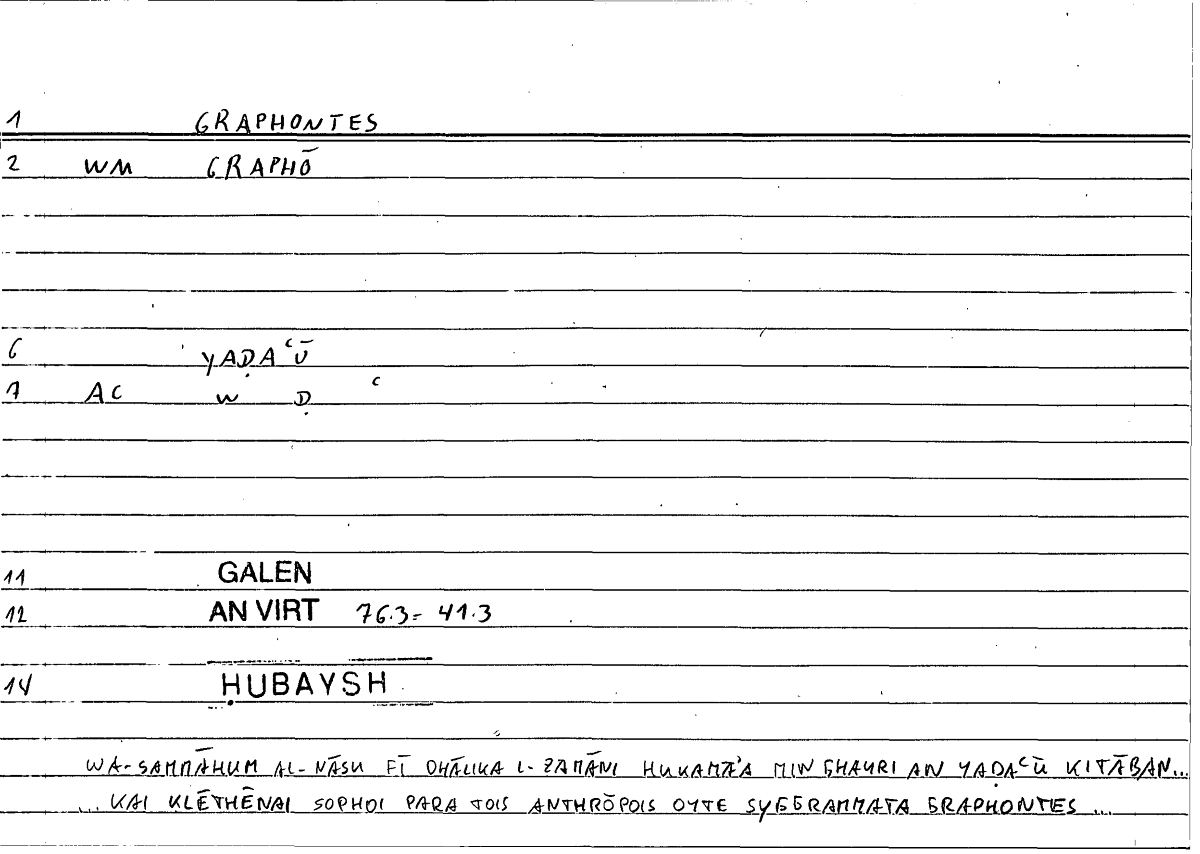 1 GRAPHONTES
2 WM GRAPHŌ
6 YAḌAʿŪ
7 AC W Ḍ ʿ
11 GALEN
12 AN VIRT 76.3 = 41.3
14 ḤUBAYSH
WA-SAMMĀHUM AL-NĀSU FĪ DHĀLIKA L-ZAMĀNI HUKAMĀʾA MIN GHAYRI AN YAḌAʿŪ KITĀBAN...
... KAI KLĒTHĒNAI SOPHOI PARA TOIS ANTHRŌPOIS OYTE SYGGRAMMATA GRAPHONTES ...